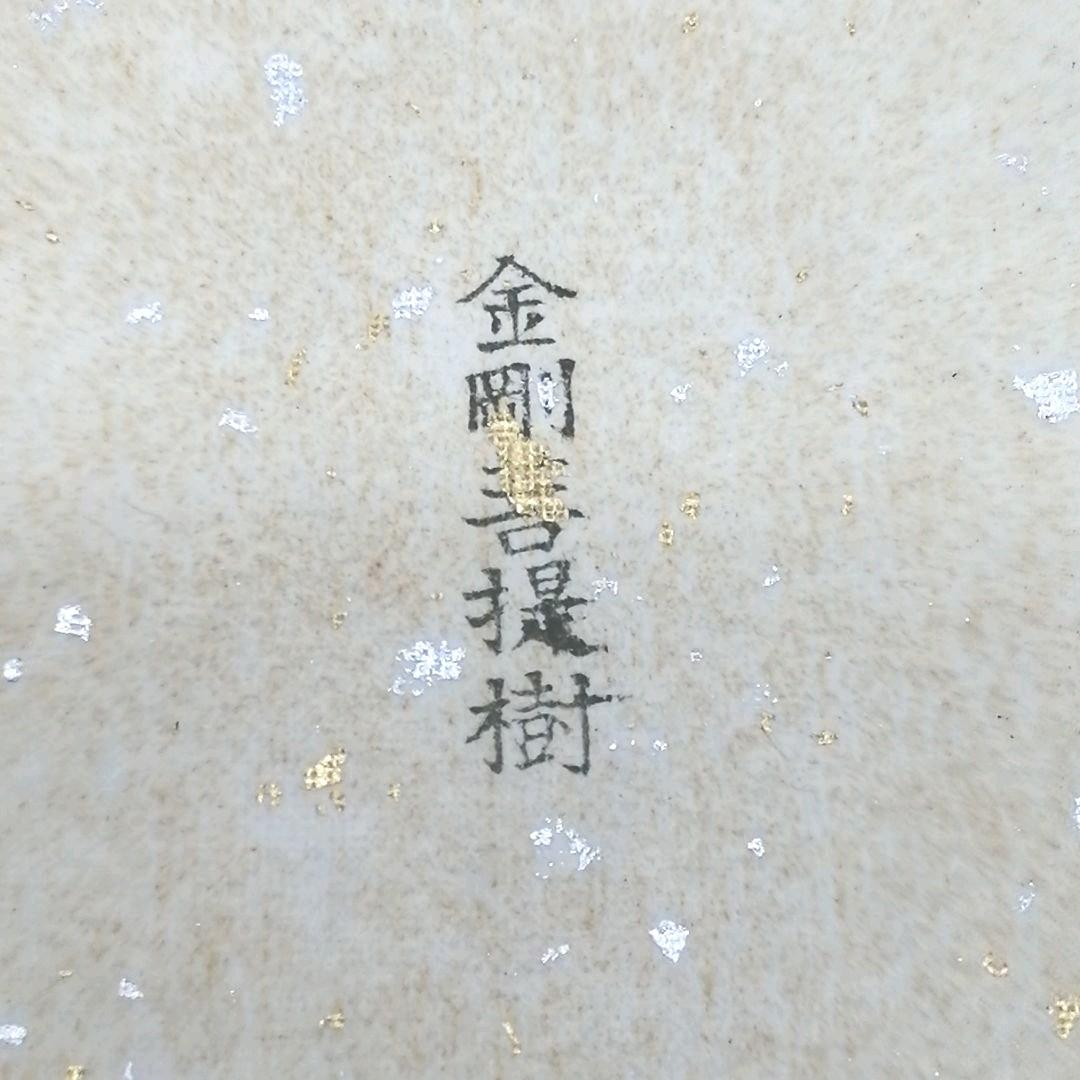 金剛菩提樹